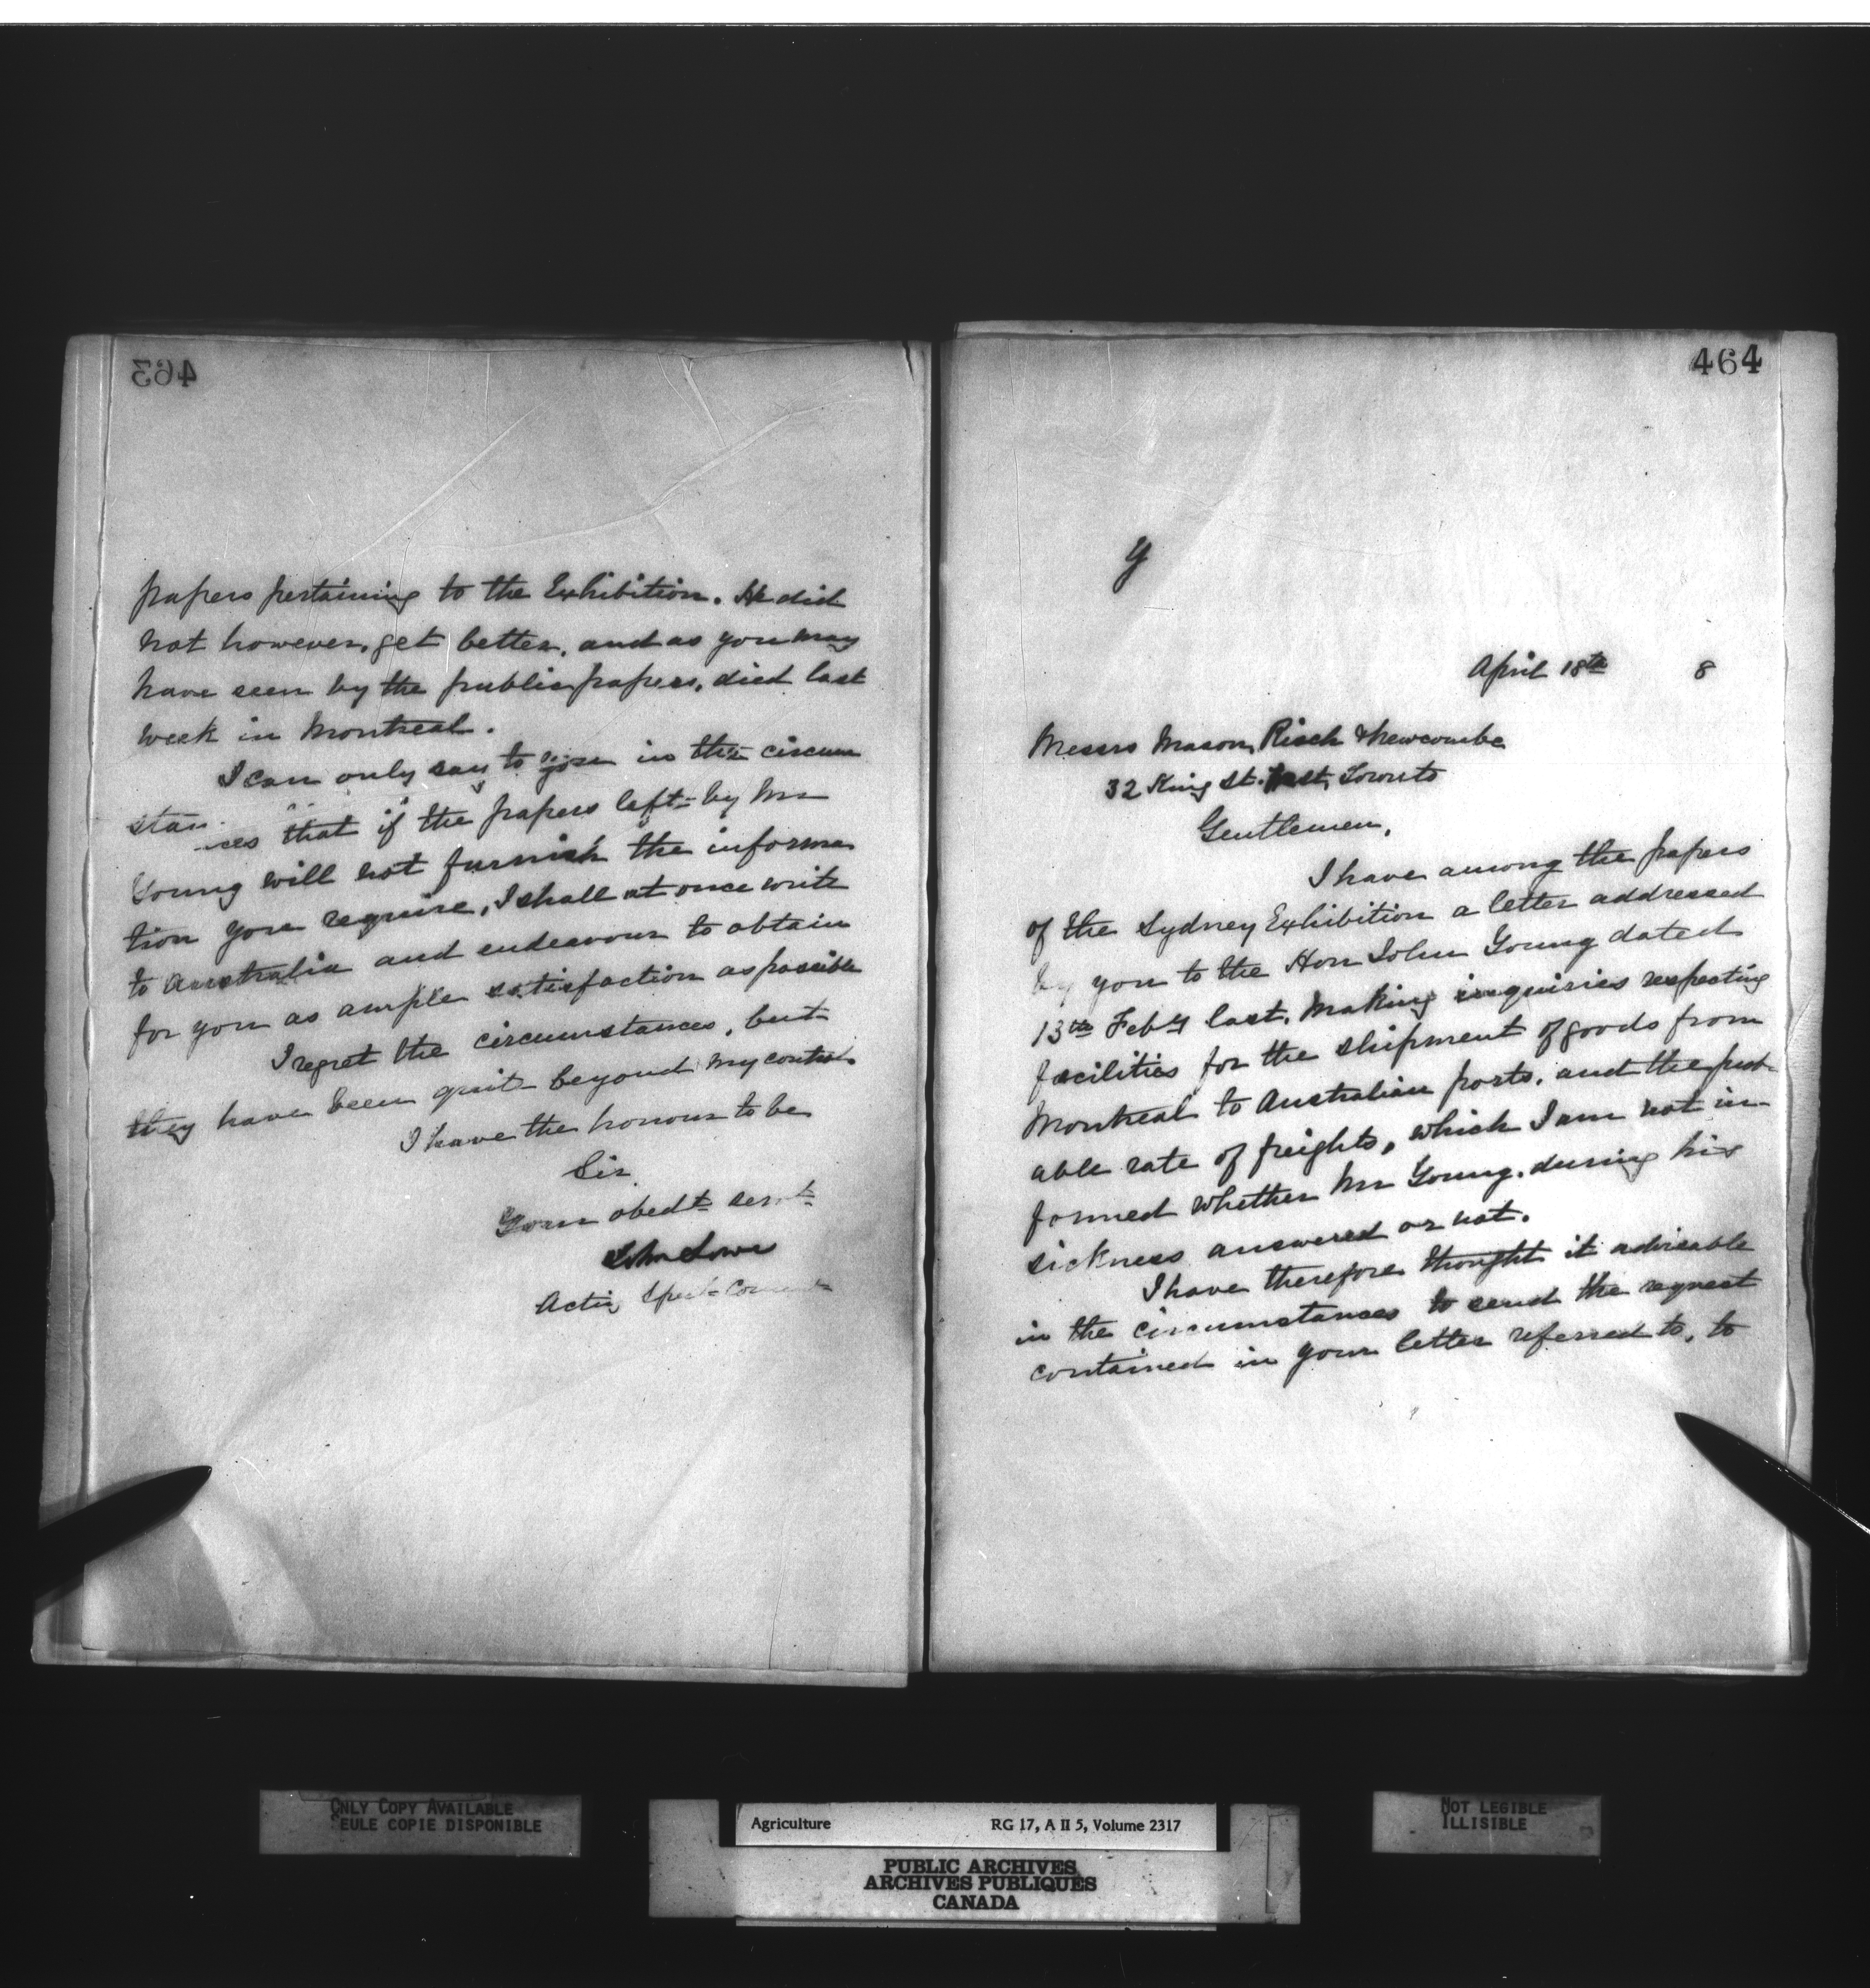 463
papers pertaining to the Exhibition. He did
not however, get better, and as you may
have seen by the public papers, died last
week in Montreal.
I can only say to you in the circum
stances that if the papers left by Mr
Young will not furnish the informa
tion you require, I shall at once write
to Australia and endeavour to obtain
for you as ample satisfaction as possible
I regret the circumstances, but
they have been quite beyond my control.
I have the honour to be
Sir,
Your obedt servt
John Lowe
Acting
464
y
April 18th 8
Messrs Mason, Risch & Newcombe
32 King St. East, Toronto
Gentlemen,
I have among the papers
of the Sydney Exhibition a letter addressed
by you to the Hon John Young dated
13th Feby last, making inquiries respecting
facilities for the shipment of goods from
Montreal to Australian ports, and the prob-
able rate of freights, which I am not in-
formed whether Mr Young, during his
sickness answered or not.
I have therefore thought it advisable
in the circumstances to send the request
contained in your letter referred to, to
ONLY COPY AVAILABLE
SEULE COPIE DISPONIBLE
Agriculture RG 17, A II 5, Volume 2317
PUBLIC ARCHIVES
ARCHIVES PUBLIQUES
CANADA
NOT LEGIBLE
ILLISIBLE